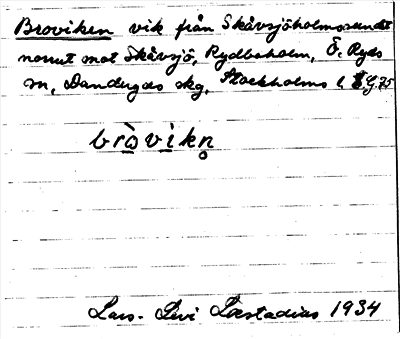 Broviken vik från Skåvsjöholmssundet
norrut mot Skåvsjö, Rydboholm, Ö. Ryds
sn, Danderyds skg, Stockholms l.
bròvikn̥
Lars-Levi Læstadius 1934